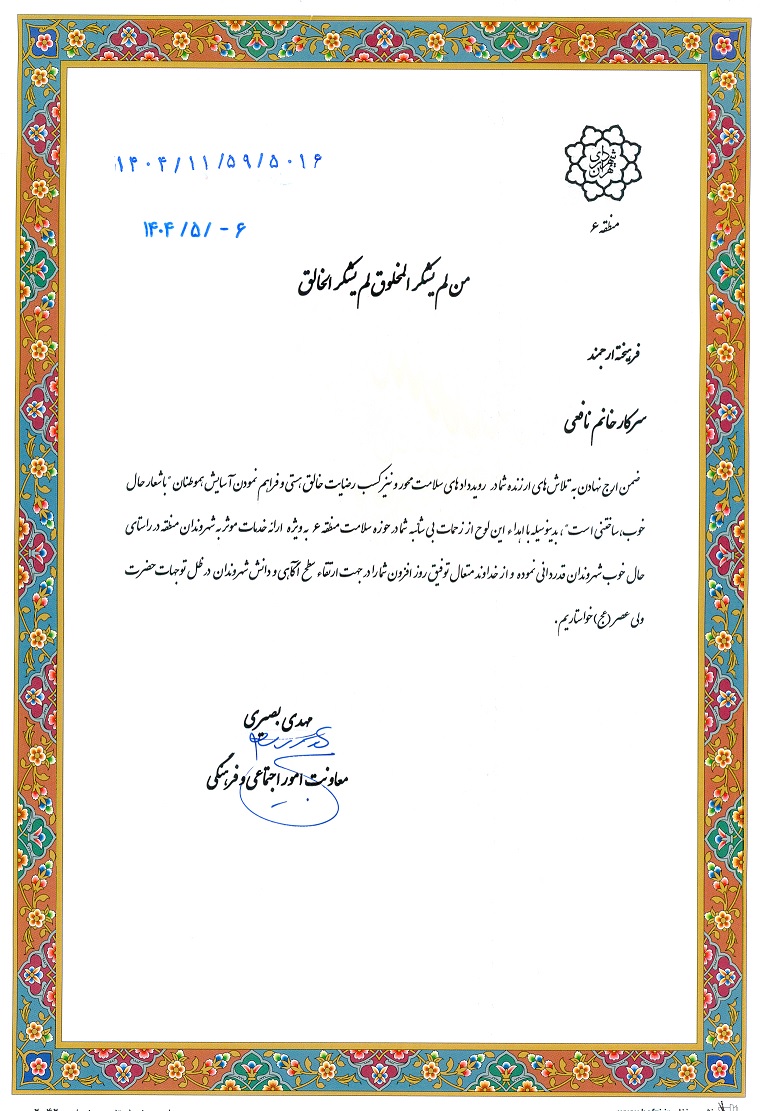 ۱۴۰۴/۱۱/۵۹/۵۰۱۶
شهرداری تهران
منطقه ۶
۱۴۰۴/۵/۰۶
من لم یشکر المخلوق لم یشکر الخالق
فرهیخته ارجمند
سرکار خانم نافعی
ضمن ارج نهادن به تلاش های ارزنده شما در رویدادهای سلامت محور و نیز کسب رضایت خالق هستی و فراهم نمودن آسایش هموطنان "با شعار حال
خوب، ساختنی است"، بدینوسیله با اهداء این لوح از زحمات بی شائبه شما در حوزه سلامت منطقه ۶ به ویژه ارائه خدمات موثر به شهروندان منطقه در راستای
حال خوب شهروندان قدردانی نموده و از خداوند متعال توفیق روز افزون شما را در جهت ارتقاء سطح آگاهی و دانش شهروندان در ظل توجهات حضرت
ولی عصر (عج) خواستاریم.
مهدی بصیری
معاونت امور اجتماعی و فرهنگی